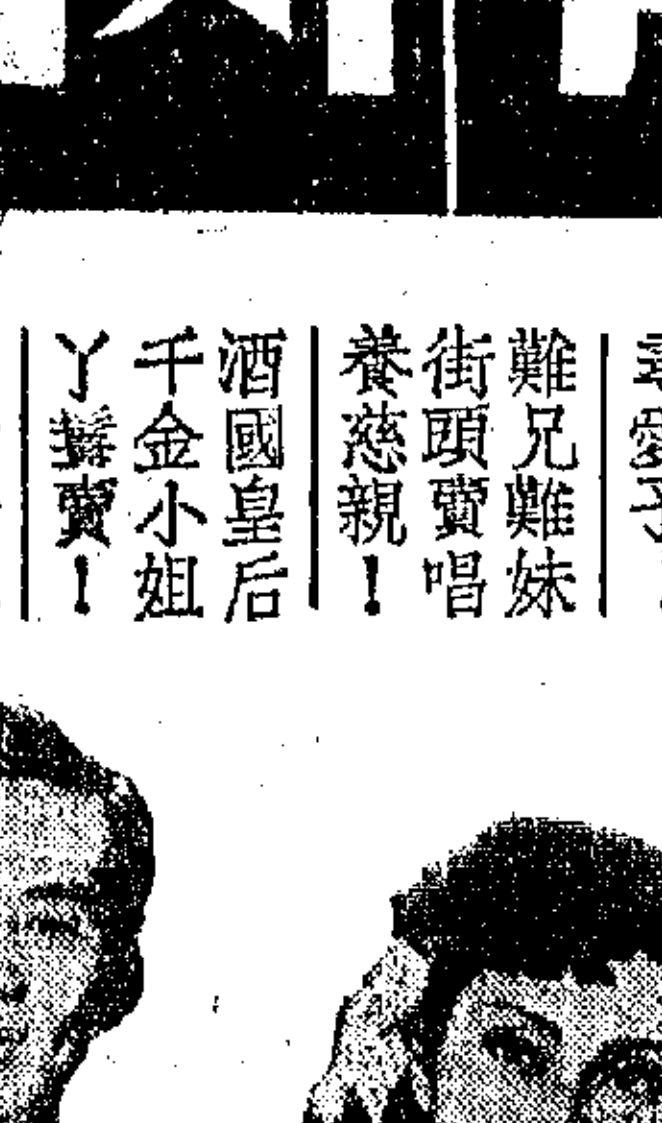 難兄難妹
街頭賣唱
養慈親！
酒國皇后
千金小姐
丫鬟賣！